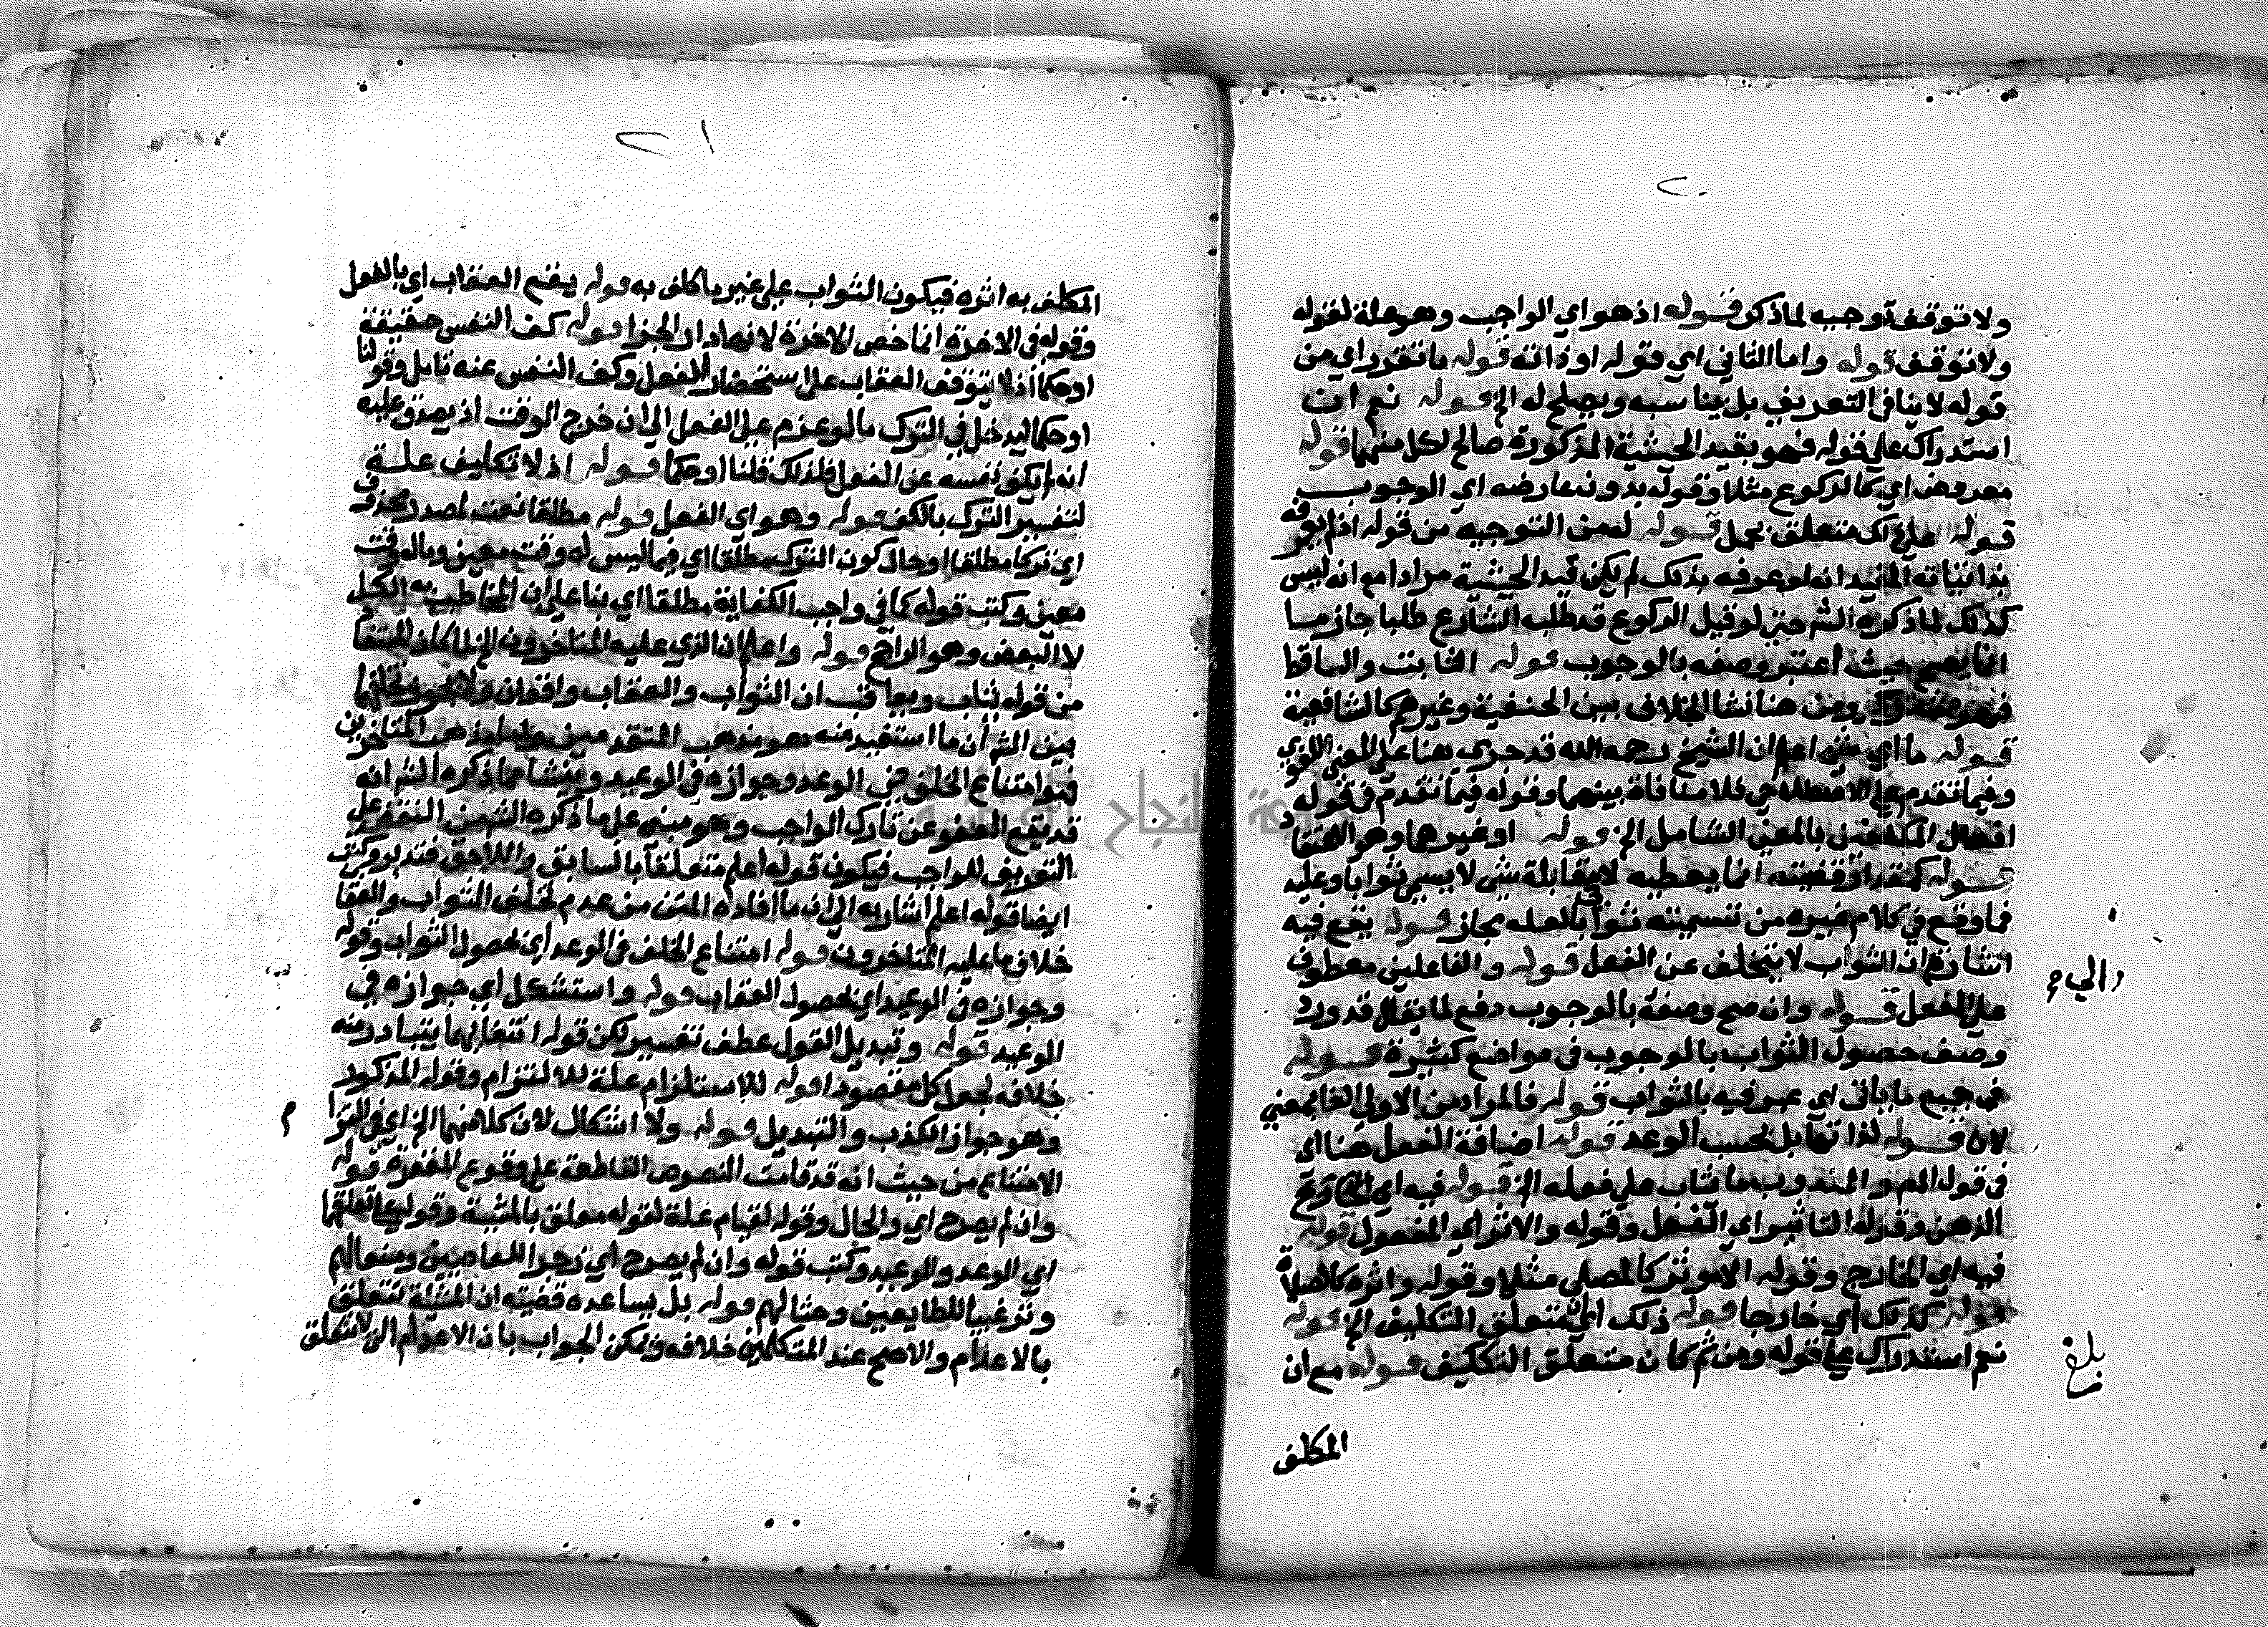 ٢٠
ولا توقف آوجبه لما ذكر قوله اذ هو اي الواجب وهو علة لقوله
ولا توقف قوله واما الثاني اي قوله او ذاته قوله ما تقرر اي من
قوله لا ينافي التعريف بل يناسبه ويصلح له الخ قوله نعم ان
استدراك على قوله فهو بقيد الحيثية المذكورة صالح لكل منهما قوله
معروض اي كالركوع مثلا وقوله بدون عارضه اي الوجوب
قوله على ذلك متعلق بحمل قوله لضمن التوجيه من قوله اذ لم يعرفه
بذاتياته المفيد انه لو عرفه بذلك لم يكن قيد الحيثية مرادا مع انه ليس
كذلك لما ذكره الش حتى لو قيل الركوع قد طلب الشارع طلبا جازما
انما يصح حيث اعتبر وصفه بالوجوب قوله الثابت والساقط
ومن هنا نشا الخلاف بين الحنفية وغيرهم كالشافعية
قوله ما اي شي اعلم ان الشيخ رحمه الله قد جرى هنا على المعنى اللغوي
وفيما تقدم على الاصطلاحي فلا منافاة بينهما وقوله فيما تقدم في قوله
افعال المكلفين بالمعنى الشامل الخ قوله او غيرها وهو الاعتقاد
قوله كمقدار قضيته انما يعطيه لا بمقابلة شي لا يسمى ثوابا وعليه
فما وقع في كلام غيره من تسميته ثوابا لعله مجاز قوله يقع فيه
اشارة الى ان الثواب لا يتخلف عن الفعل قوله والفاعلين معطوف
على الفعل قوله وان صح وصفه بالوجوب دفع لما يقال قد ورد
وصف حصول الثواب بالوجوب في مواضع كثيرة قوله
في جميع ما ياتي اي عبر فيه بالثواب قوله فالمراد من الاولى الفا بمعنى
لان قوله لذا تقابل بحسب الوعد قوله اضافة الفعل هنا اي
في قول المص والمندوب ما يثاب على فعله الخ قوله فيه اي الخارج
الذهن وقوله التاثير اي الفعل وقوله والاثر اي المفعول قوله
فيه اي الخارج وقوله الاموثر كالمصلي مثلا وقوله واثره كالصلاة
قوله كذلك اي خارجا قوله ذلك اي متعلق التكليف الخ قوله
نعم استدراك على قوله ومن ثم كان متعلق التكليف قوله مع ان
بلغ
المكلف
٢١
المكلف به اثره فيكون الثواب على غير ما كلف به قوله يقع العقاب اي بالفعل
وقوله في الاخرة انما خص الاخرة لانها دار الجزا قوله كف النفس حقيقة
او حكما اذ لا يتوقف العقاب على استحضار الفعل وكف النفس عنه تامل وقولنا
او حكما ليدخل في الترك ما لو عزم على الفعل الى ان خرج الوقت اذ يصدق عليه
انه لم يكف نفسه عن الفعل فلذلك قلنا او حكما قوله اذ لا تكليف علة
لتفسير الترك بالكف قوله وهو اي الفعل قوله مطلقا نعت لمصدر محذوف
اي تركا مطلقا او حال كون الترك مطلقا اي فيما ليس له وقت معين وبالوقت
معين وكتب قوله كما في واجب الكفاية مطلقا اي بنا على ان المخاطب به الكل
لا البعض وهو الراجح قوله واعلم ان الذي عليه المتاخرون الخ لما كان المستفاد
من قوله يثاب ويعاقب ان الثواب والعقاب واقعان ولا يجوز تخلفهما
بين الش ان ما استفيد منه هو مذهب المتقدمين واما مذهب المتاخرين
فهو امتناع الخلف في الوعد وجوازه في الوعيد وينشا مما ذكره الش انه
قد يقع العفو عن تارك الواجب وهو مبني على ما ذكره الش من النقض على
التعريف للواجب فيكون قوله اعلم متعلقا بالسابق واللاحق فتدبر وكتب
ايضا قوله اعلم اشار به الى ان ما افاده المتن من عدم تخلف الثواب والعقاب
خلاف ما عليه المتاخرون قوله امتناع الخلف في الوعد اي بحصول الثواب وقوله
وجوازه في الوعيد اي بحصول العقاب قوله واستشكل اي جوازه في
الوعيد قوله وتبديل القول عطف تفسير لكن قوله انتفا بهما يتبادر منه
خلافه لجعل كل مقصودا قوله للاستلزام علة للالتزام وقوله المذكور
وهو جواز الكذب والتبديل قوله ولا اشكال لان كلا منهما الخ اي في التزام
الامتناع من حيث انه قد قامت النصوص القاطعة على وقوع المغفرة قوله
وان لم يصرح اي والحال وقوله لقيام علة لقوله معلق بالمشية وقوله على تعلقهما
اي الوعد والوعيد وكتب قوله وان لم يصرح اي زجرا للعاصين ومنعا لهم
وترغيبا للطايعين وحثا لهم قوله بل يساعده قضيته ان المشيئة تتعلق
بالاعلام والاصح عند المتكلمين خلافه ويمكن الجواب بان الاعدام التي لا تتعلق